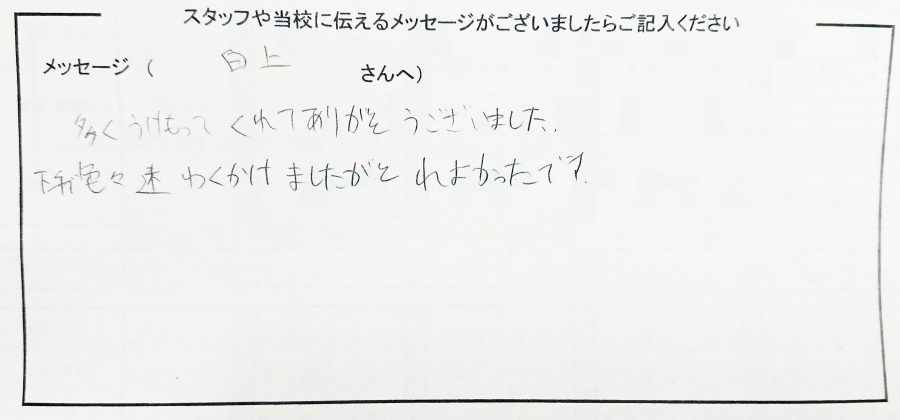 スタッフや当校に伝えるメッセージがございましたらご記入ください
メッセージ ( 白上 さんへ)
多くうけもってくれてありがとうございました.
色々迷わくかけましたがとれよかったです.